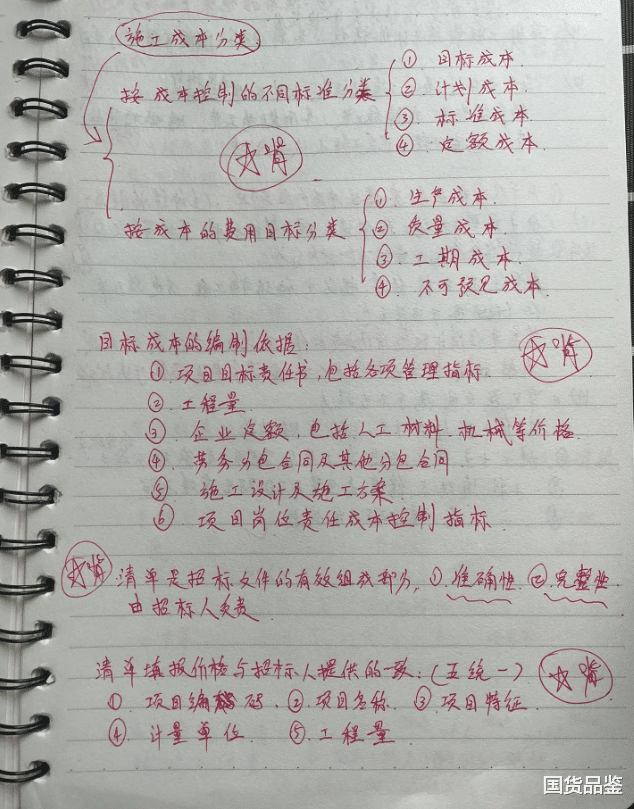 施工成本分类
按成本控制的不同标准分类
① 目标成本.
② 计划成本.
③ 标准成本
④ 定额成本.
☆背
按成本的费用目标分类
① 生产成本.
② 质量成本.
③ 工期成本.
④ 不可预见成本.
目标成本的编制依据:
☆背
① 项目目标责任书,包括各项管理指标.
② 工程量.
③ 企业定额,包括人工 材料 机械等价格.
④ 劳务分包合同及其他分包合同
⑤ 施工设计及施工方案.
⑥ 项目岗位责任成本控制指标.
☆背 清单是招标文件的有效组成部分, ①准确性. ②完整性
由招标人负责.
清单填报价格与招标人提供的一致:(五统一)
☆背
① 项目编码. ② 项目名称. ③ 项目特征.
④ 计量单位. ⑤ 工程量
国货品鉴